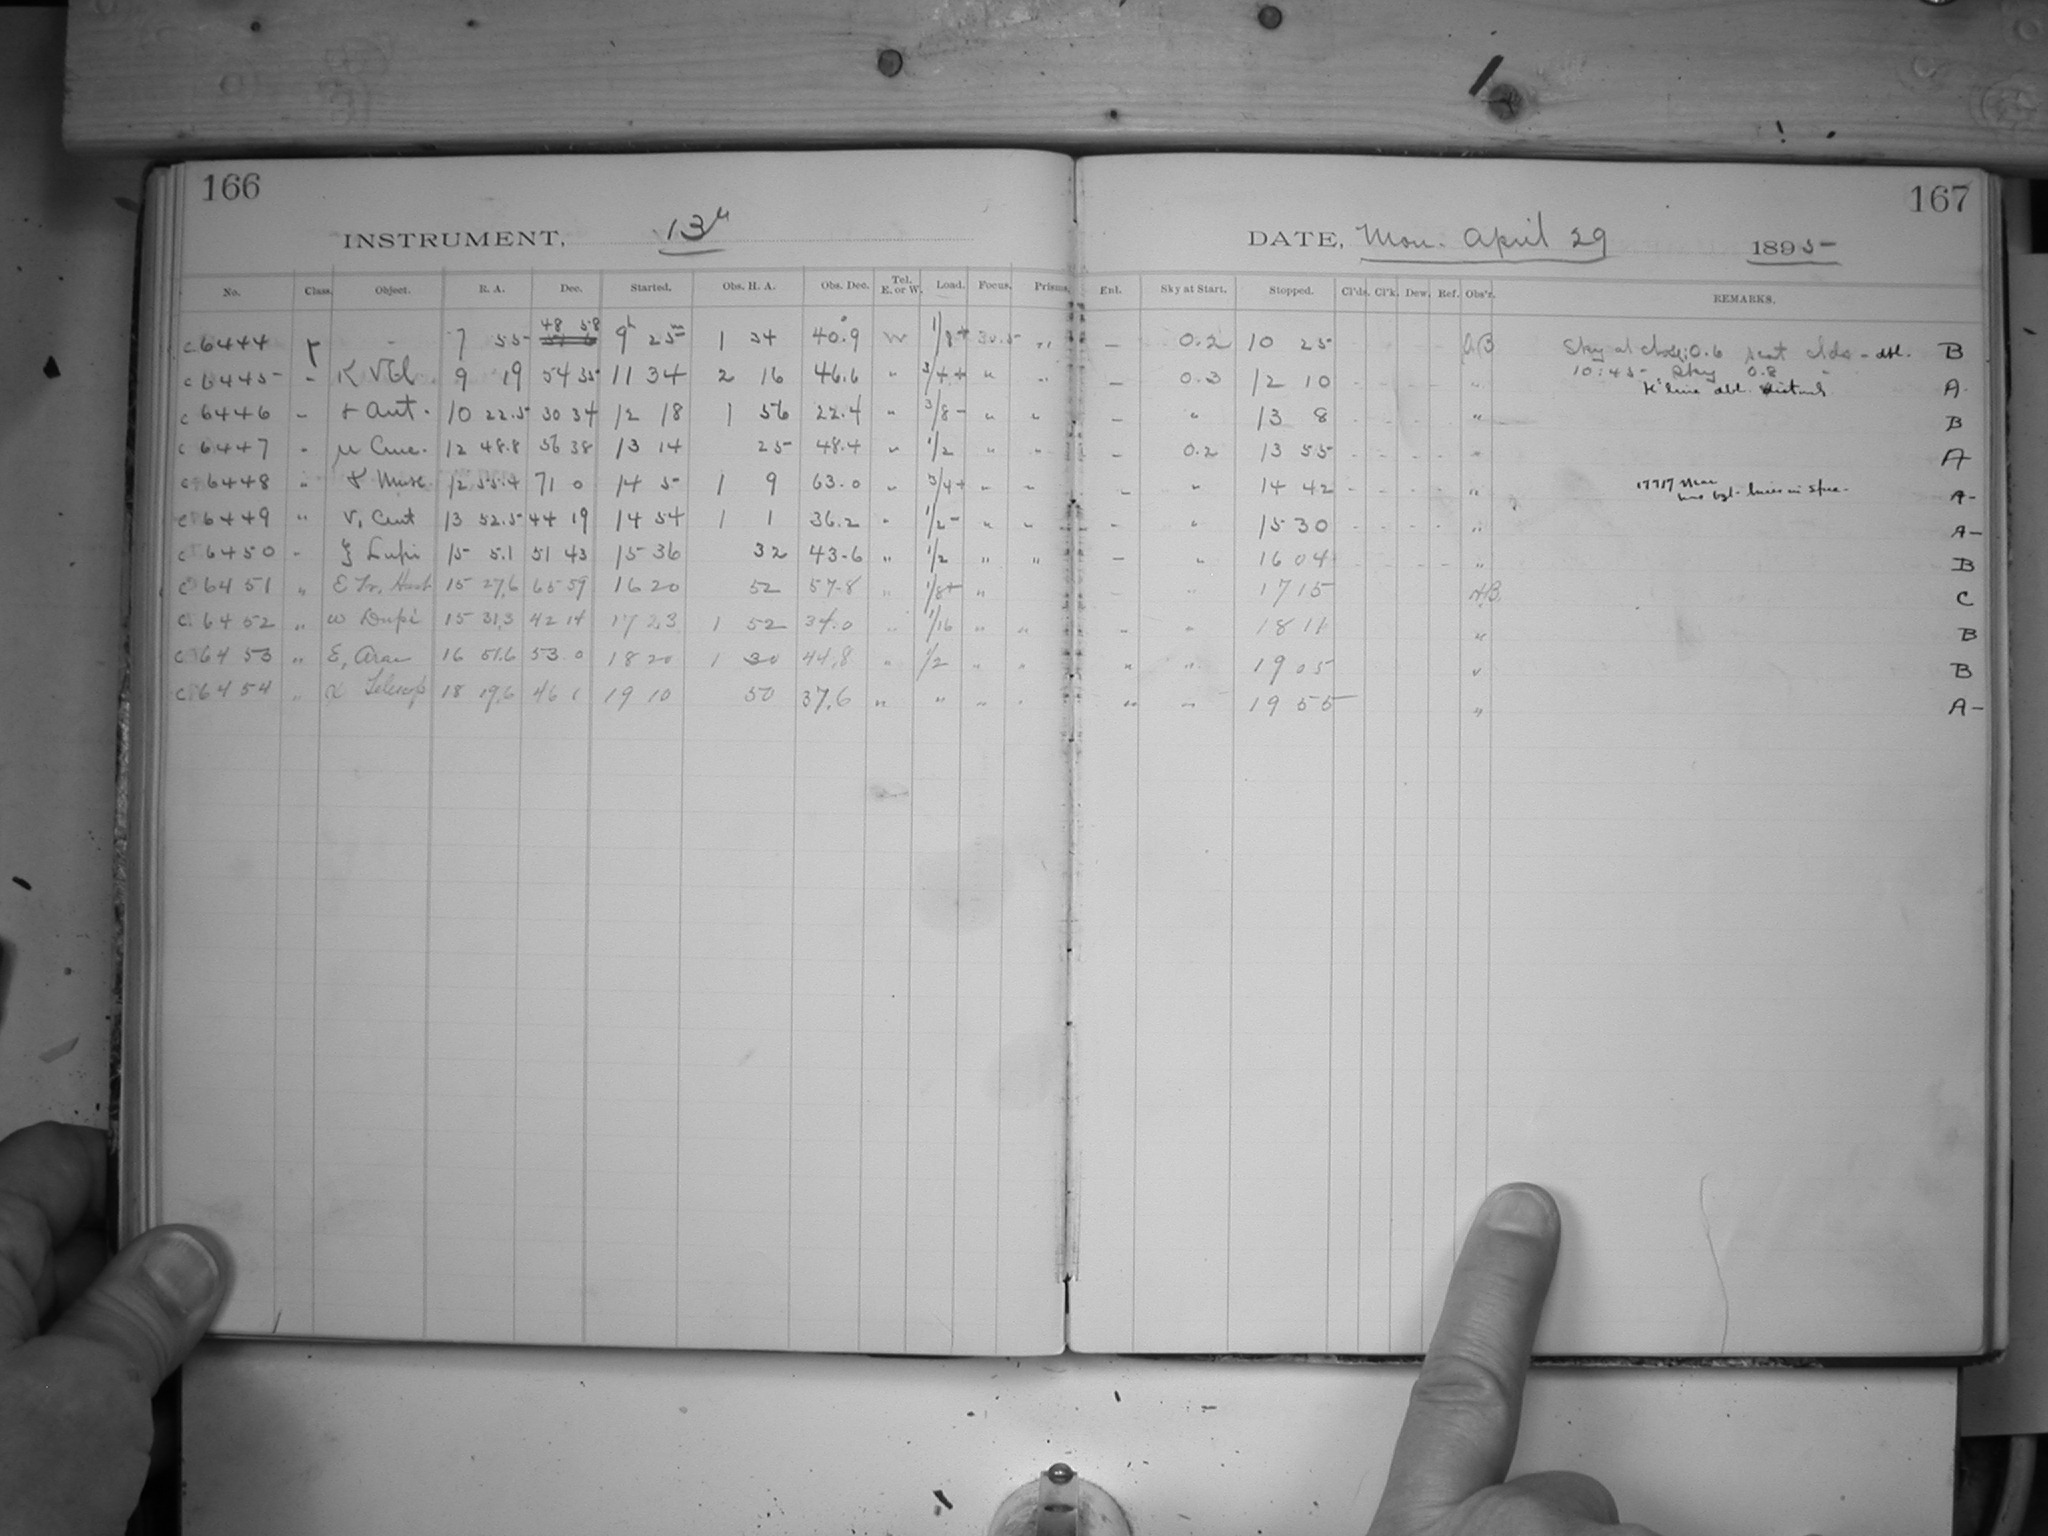 166
167
INSTRUMENT, 13"
DATE, Mon. April 29 1895
No. Class. Object. R. A. Dec. Started. Obs. H. A. Obs. Dec. Tel. E. or W. Load. Focus. Prisms. Enl. Sky at Start. Stopped. Cl'ds. Cl'k. Dew. Ref. Obs'r. REMARKS.
c 6444 - 7 55 48 58 9h 25m 1 34 40.9 W 1/8+ 30.5 " - 0.2 10 25 AB Sky at close: 0.6 - dbl. B
c 6445 - K Vel. 9 19 54 35 11 34 2 16 46.6 " 3/4+ " " - 0.3 12 10 " 10:45 - Sky 0.8 - A
"K" line dbl. distinct
c 6446 - Ant. 10 22.5 30 34 12 18 1 56 22.4 " 3/8- " " - " 13 8 " B
c 6447 " μ Cruc. 12 48.8 56 38 13 14 25 48.4 " 1/2 " " - 0.2 13 55 " A
c 6448 " Musc. 12 55.4 71 0 14 5 1 9 63.0 " 3/4+ " " - " 14 42 " lines in spec. A-
c 6449 " ν, Cent 13 52.5 44 19 14 54 1 1 36.2 " 1/2- " " - " 15 30 " A-
c 6450 - ζ Lupi 15 5.1 51 43 15 36 32 43.6 " 1/2 " " - " 16 04 " B
c 6451 " E Tr. Aust 15 27.6 65 59 16 20 52 57.8 " 1/8+ " " 17 15 AB. C
c 6452 " ω Lupi 15 31.3 42 14 17 23 1 52 34.0 " 1/16 " " " " 18 11 " B
c 6453 " E, Arae 16 51.6 53 0 18 20 1 30 44.8 " 1/2 " " " " 19 05 " B
c 6454 " α Telescop 18 19.6 46 1 19 10 50 37.6 " " " " " " 19 55 " A-